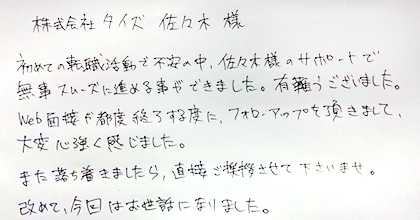 株式会社タイズ 佐々木 様
初めての転職活動で不安の中、佐々木様のサポートで
無事スムーズに進める事ができました。有難うございました。
Web面接が都度終了する度に、フォローアップを頂きまして、
大変心強く感じました。
また落ち着きましたら、直接ご挨拶させて下さいませ。
改めて、今回はお世話になりました。